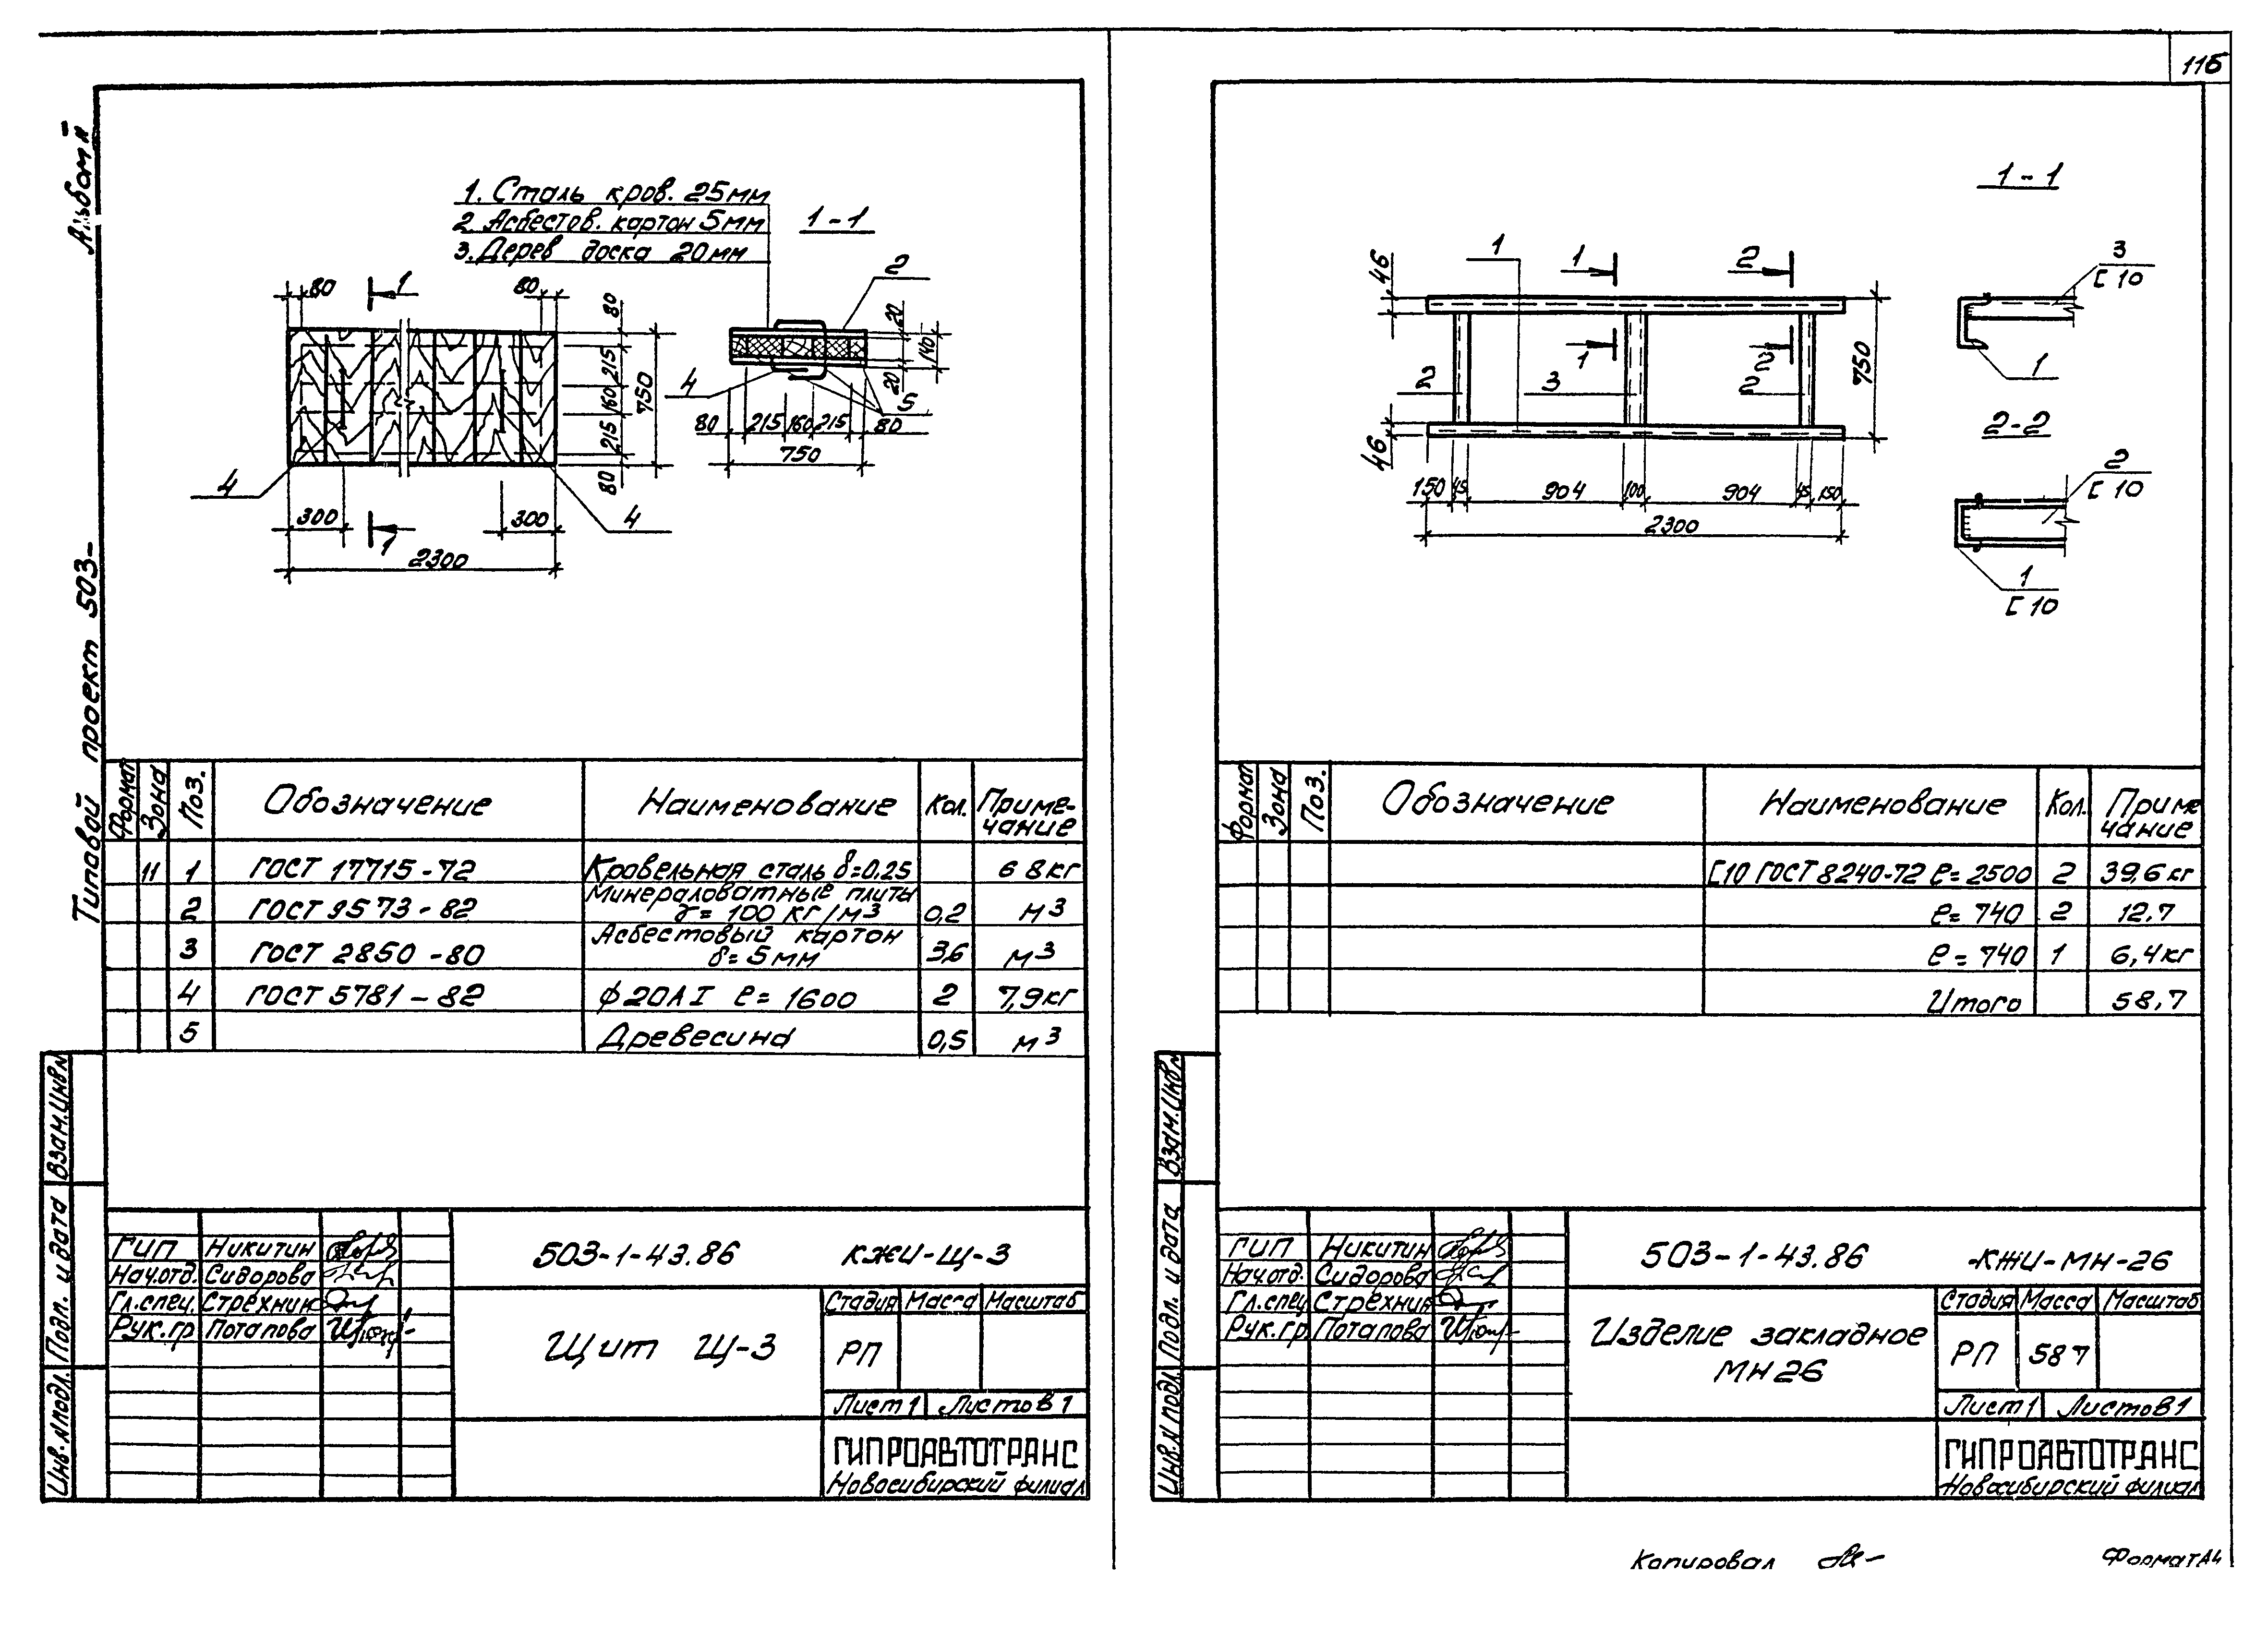 116
Альбом II
Типовой проект 503-
1. Сталь кров. 25мм
2. Асбестов. картон 5мм
3. Дерев доска 20мм
1-1
80
1
80
2
80
215
160
215
80
750
20
140
20
4
5
80 215 160 215 80
750
4
4
300
300
1
2300
Формат Зона Поз. Обозначение Наименование Кол. Приме-
чание
11 1 ГОСТ 17715-72 Кровельная сталь δ=0.25 68кг
2 ГОСТ 9573-82 Минераловатные плиты
γ= 100 кг/м3 0,2 м3
3 ГОСТ 2850-80 Асбестовый картон
δ= 5мм 3,6 м3
4 ГОСТ 5781-82 ф20АI ℓ= 1600 2 7,9кг
5 Древесина 0,5 м3
Взам.инв.N
Подп. и дата
Инв.Nподл.
ГИП Никитин
Нач.отд. Сидорова
Гл.спец. Стрехник
Рук.гр Потапова
503-1-43.86 КЖИ-Щ-3
Щит Щ-3
Стадия Масса Масштаб
РП
Лист 1 Листов 1
ГИПРОАВТОТРАНС
Новосибирский филиал
1-1
3
[ 10
1
2-2
2
[ 10
1
[ 10
46
1
1
2
750
1
2
2
3
2
46
150 45 904 100 904 45 150
2300
Формат Зона Поз. Обозначение Наименование Кол. Приме
чание
[10 ГОСТ 8240-72 ℓ= 2500 2 39,6 кг
ℓ= 740 2 12,7
ℓ= 740 1 6,4кг
Итого 58,7
Взам.инв.N
Подп. и дата
Инв.N подл.
ГИП Никитин
Нач.отд. Сидорова
Гл.спец Стрехник
Рук.гр Потапова
503-1-43.86 -КЖИ-МН-26
Изделие закладное
МН26
Стадия Масса Масштаб
РП 58 7
Лист 1 Листов 1
ГИПРОАВТОТРАНС
Новосибирский филиал
Копировал
Формат А4